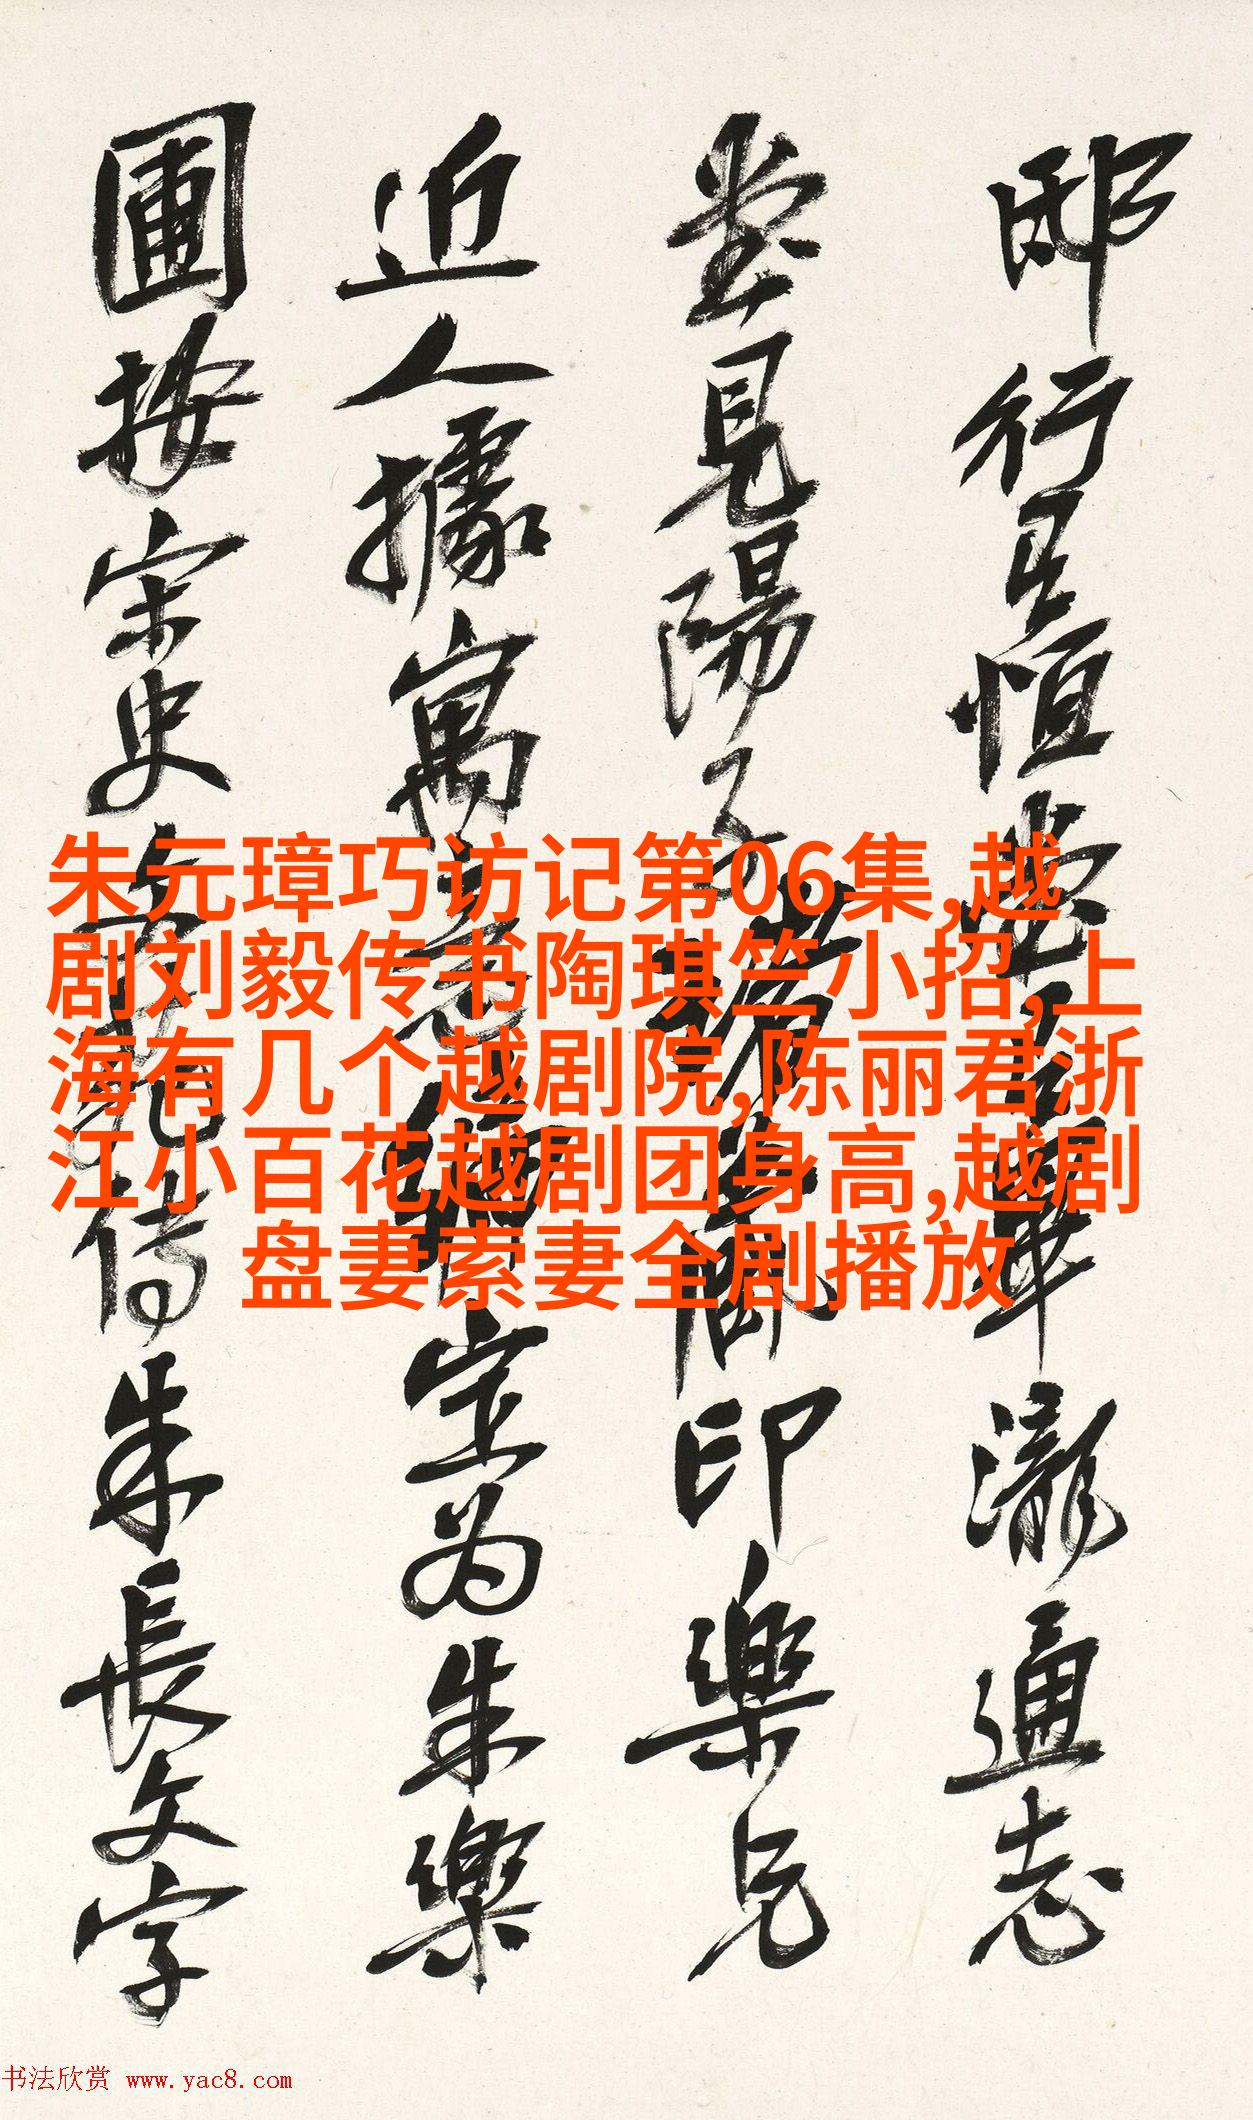 邸行呈恒
瀧通志
堂見陽子
印樂兄
近人據寓意編定為朱樂
圃按宋史文苑傳朱長文字
朱元璋巧访记第06集,越
剧刘毅传书陶琪竺小招,上
海有几个越剧院,陈丽君浙
江小百花越剧团身高,越剧
盘妻索妻全剧播放
书法欣赏 www.yac8.com